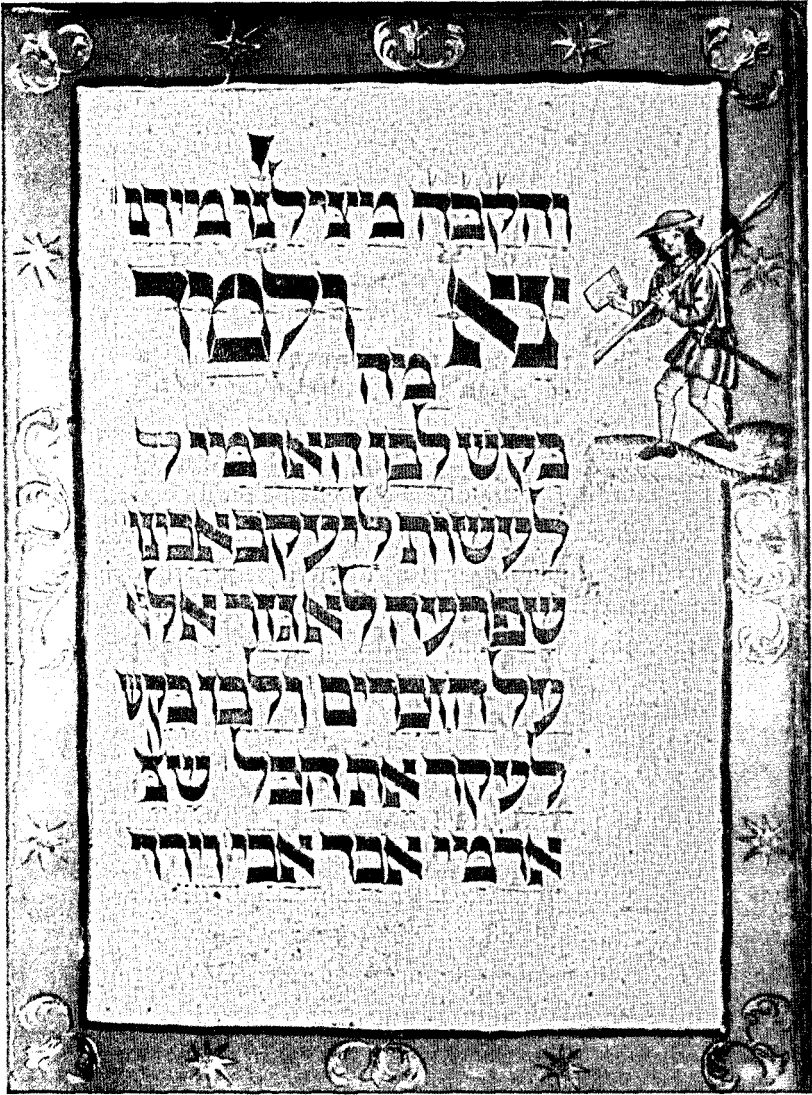 והקבה מצילנו מידם
צא ולמד
מה
בקש לבן הארמי ל
לעשות ליעקב אבינו
שפרעה לא גזר אלא
על הזכרים ולבן בקש
לעקר את הכל שנ
ארמי אבד אבי וירד